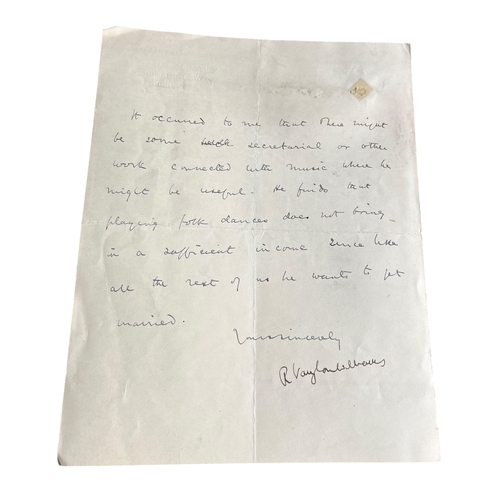 It occurred to me that there might
be some secretarial or other
work connected with music where he
might be useful. He finds that
playing folk dances does not bring
in a sufficient income since like
all the rest of us he wants to get
married.
Yours sincerely
R Vaughan Williams